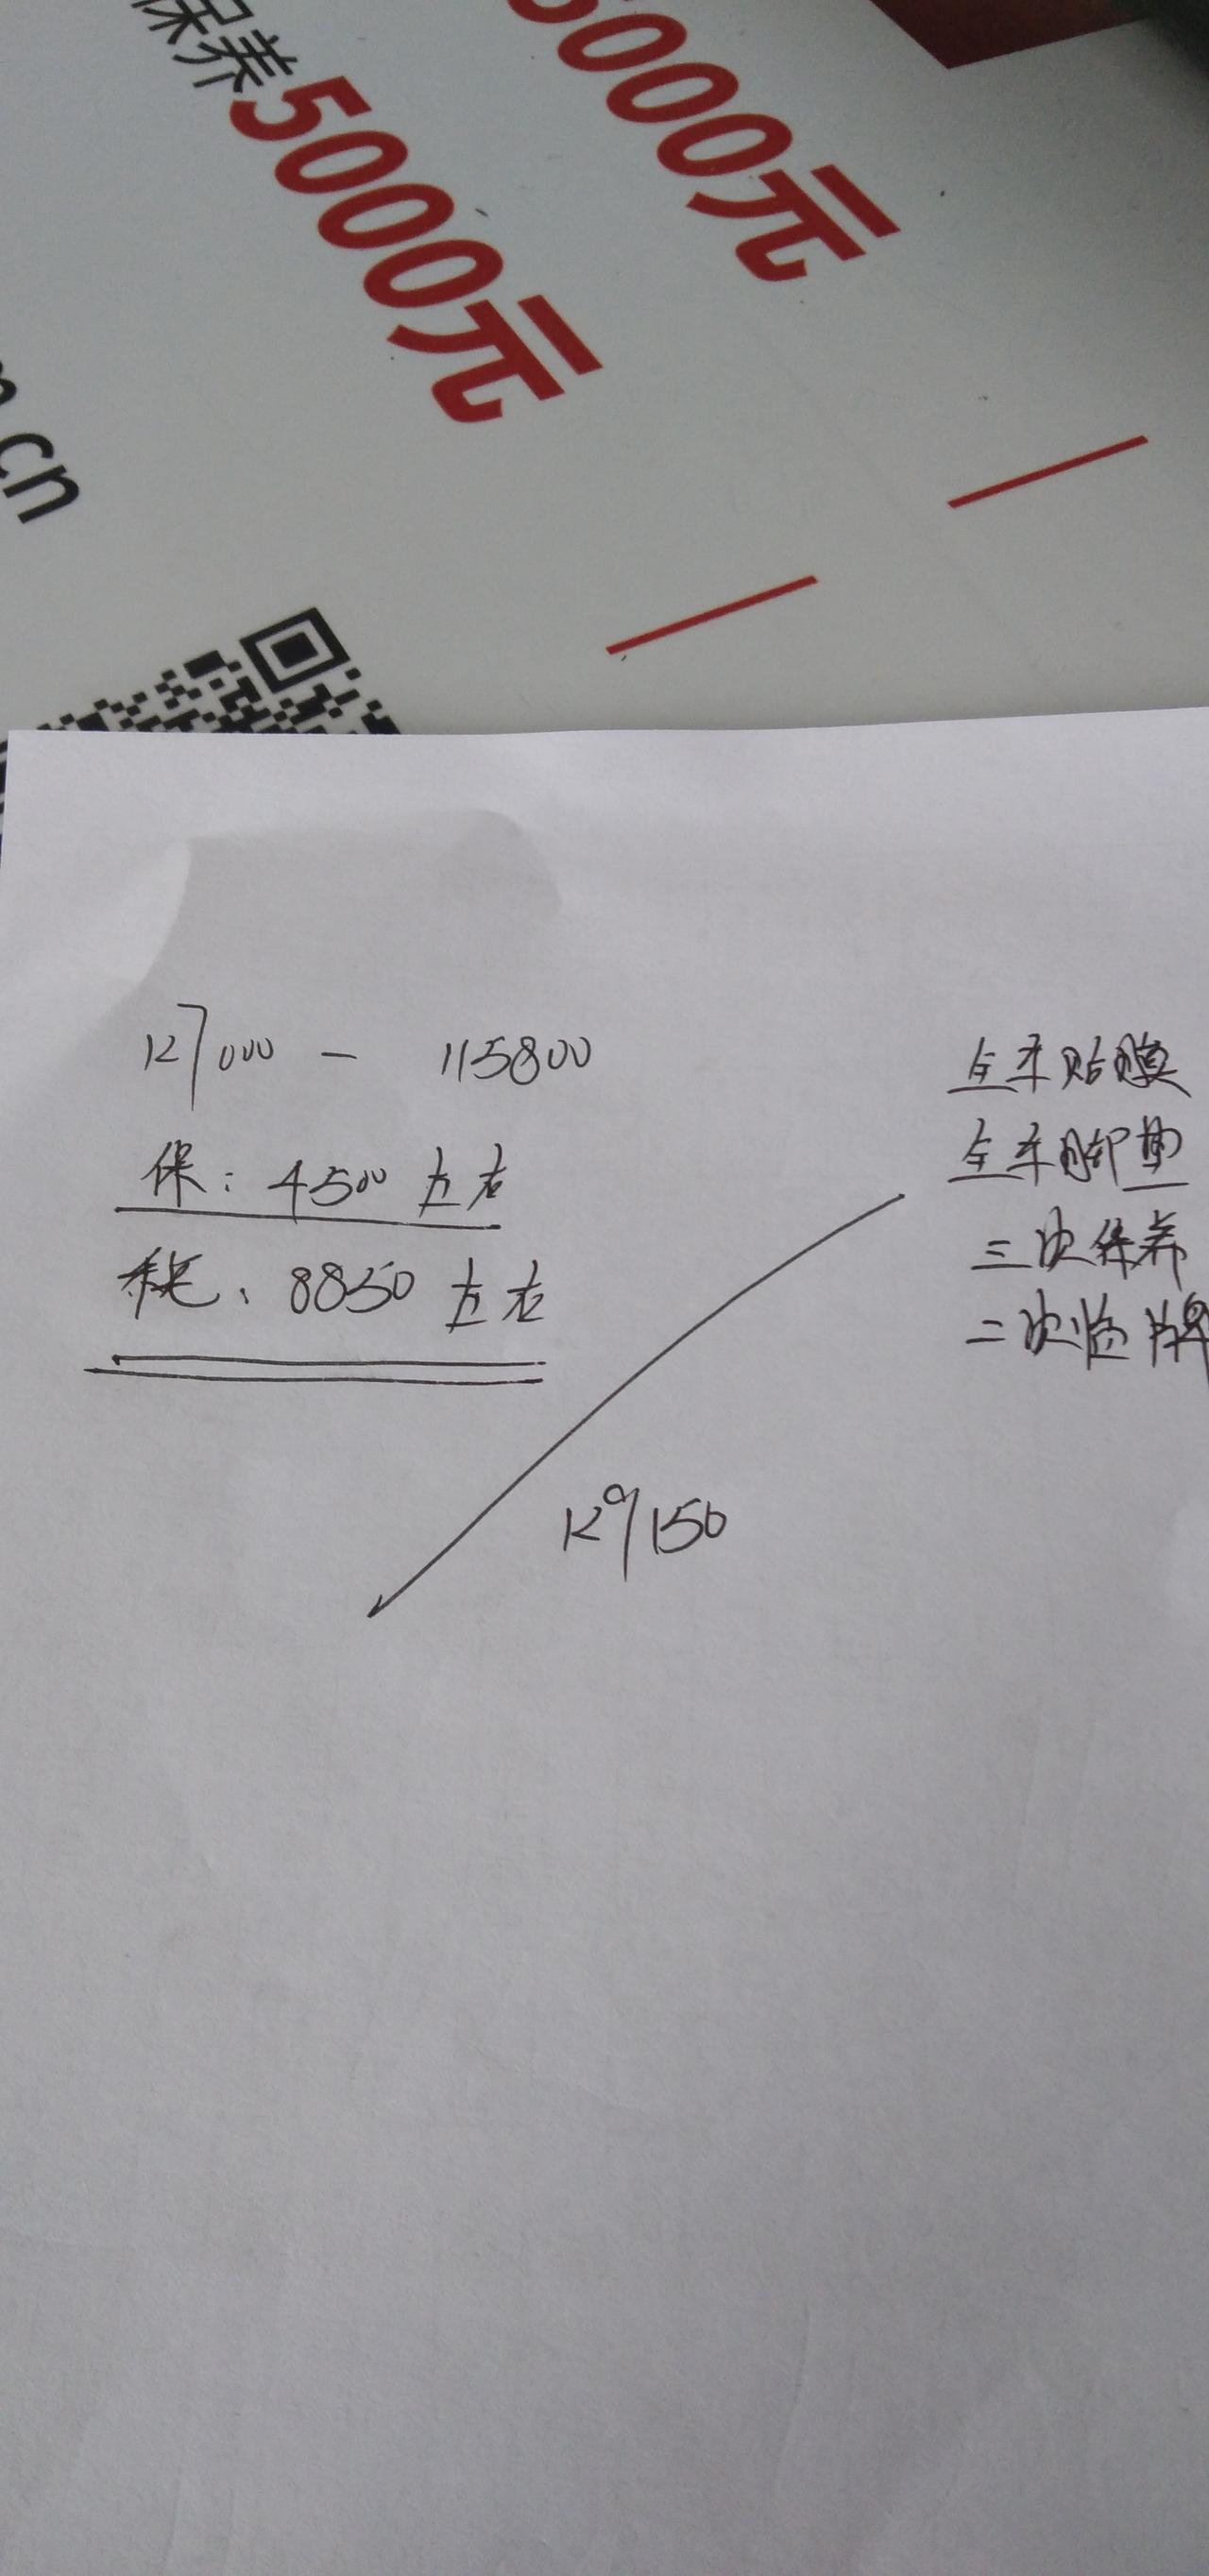 5000元
保养5000元
.cn
127000 - 115800
保: 4500左右
税、8850左右
全车贴膜
全车脚垫
三次保养
二次临牌
129150